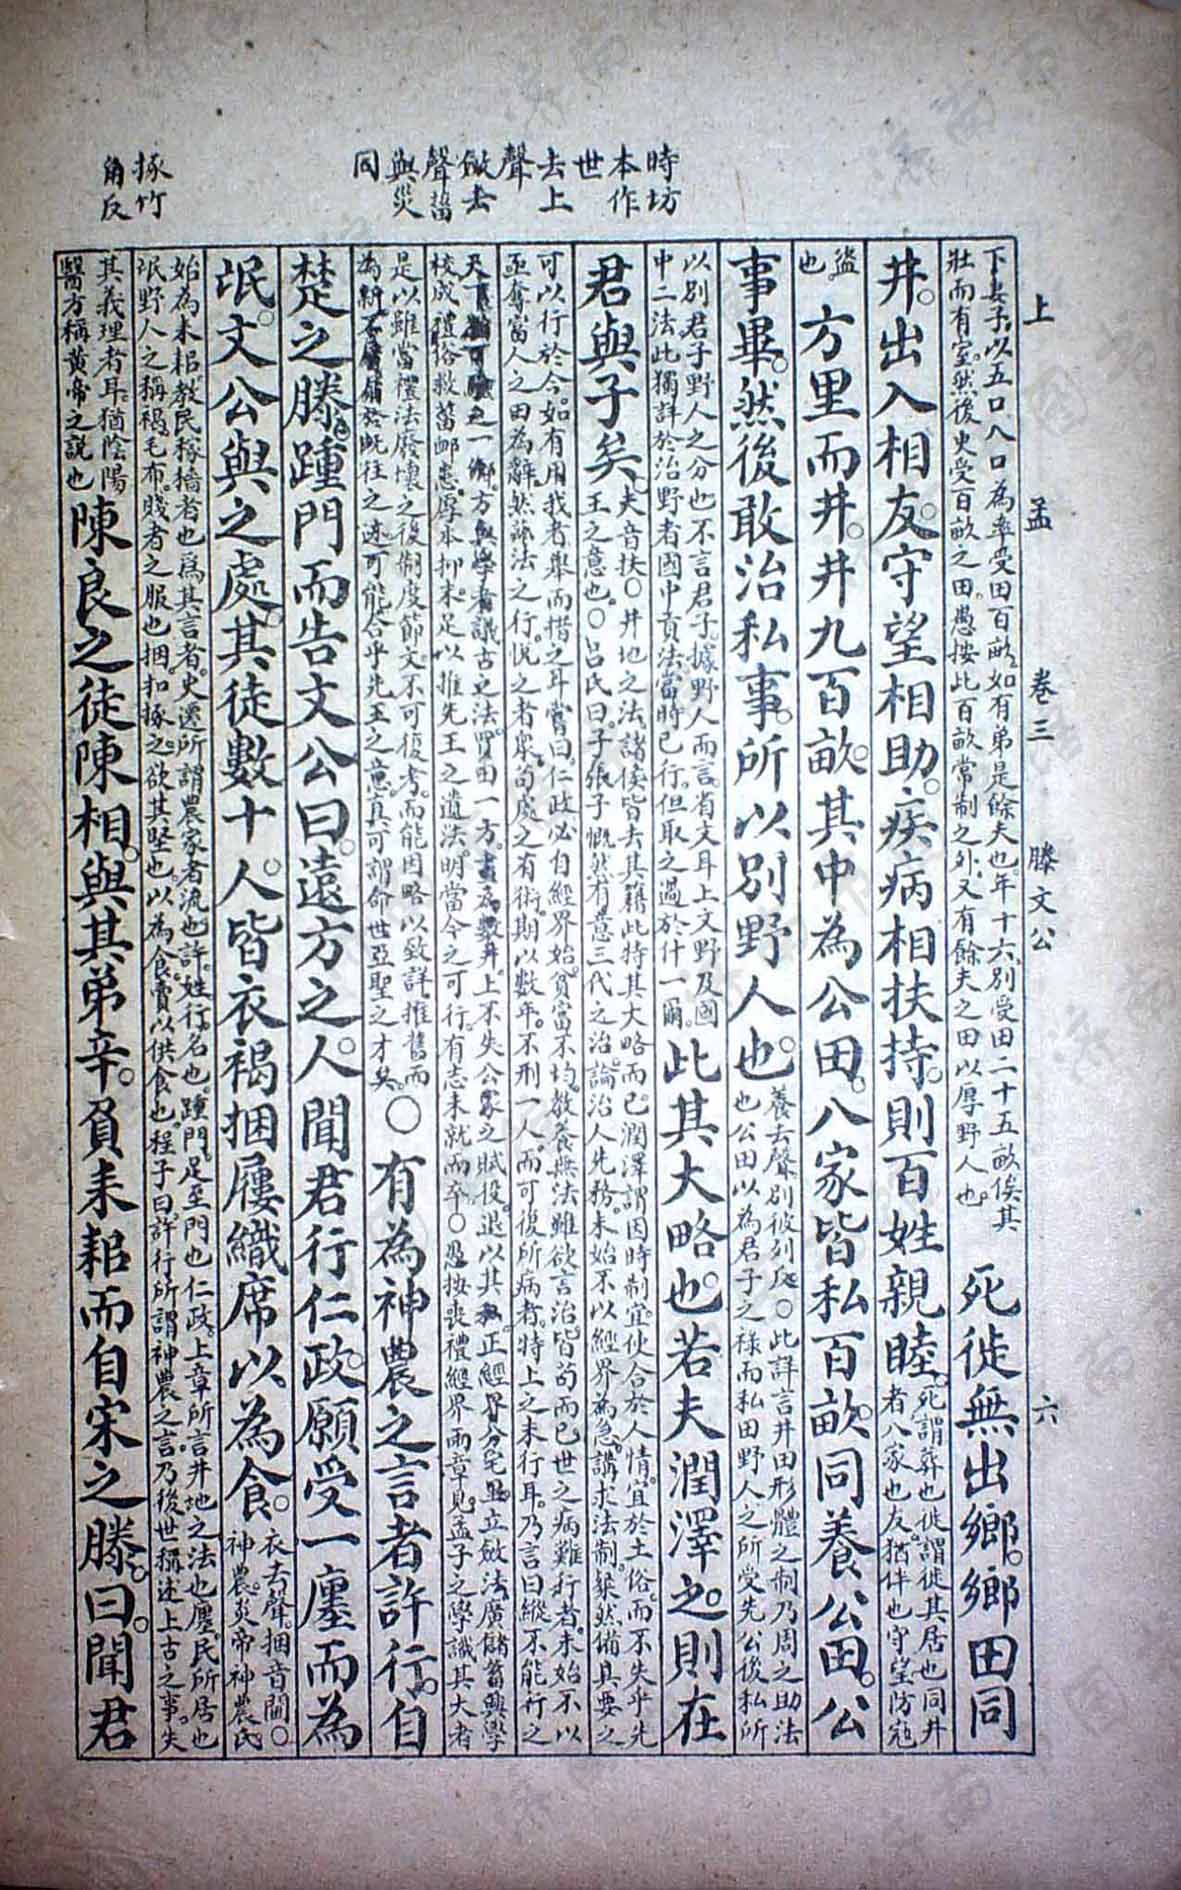 時坊
本作
世
去上
聲
斂去
聲菑
與災
同
㧻竹
角反
上 孟 卷三 滕文公 六
下妻子以五口八口為率受田百畝如有弟是餘夫也年十六別受田二十五畝俟其
壯而有室然後更受百畝之田愚按此百畝常制之外又有餘夫之田以厚野人也
死徙無出鄉鄉田同
井出入相友守望相助疾病相扶持則百姓親睦
死謂葬也徙謂徙其居也同井
者八家也友猶伴也守望防寇
盜
也
方里而井井九百畝其中為公田八家皆私百畝同養公田公
事畢然後敢治私事所以別野人也
養去聲別彼列反○此詳言井田形體之制乃周之助法
也公田以為君子之祿而私田野人之所受先公後私所
以別君子野人之分也不言君子據野人而言省文耳上文野及國
中二法此獨詳於治野者國中貢法當時已行但取之過於什一爾
此其大略也若夫潤澤之則在
君與子矣
夫音扶○井地之法諸侯皆去其籍此特其大略而已潤澤謂因時制宜使合於人情宜於土俗而不失乎先
王之意也○呂氏曰子張子慨然有意三代之治論治人先務未始不以經界為急講求法制粲然備具要之
可以行於今如有用我者舉而措之耳嘗曰仁政必自經界始貧富不均教養無法雖欲言治皆苟而已世之病難行者未始不以
亟奪富人之田為辭然茲法之行悅之者眾苟處之有術期以數年不刑一人而可復所病者特上之未行耳乃言曰縱不能行之
天下猶可驗之一鄉方與學者議古之法買田一方畫為數井上不失公家之賦役退以其私正經界分宅里立斂法廣儲蓄興學
校成禮俗救菑卹患厚本抑末足以推先王之遺法明當今之可行有志未就而卒○愚按喪禮經界兩章見孟子之學識其大者
是以雖當禮法廢壞之後制度節文不可復考而能因略以致詳推舊而
為新不屑屑於既往之迹可能合乎先王之意真可謂命世亞聖之才矣
○有為神農之言者許行自
楚之滕踵門而告文公曰遠方之人聞君行仁政願受一廛而為
氓文公與之處其徒數十人皆衣褐捆屨織席以為食
衣去聲捆音閫○
神農炎帝神農氏
始為耒耜教民稼穡者也為其言者史遷所謂農家者流也許姓行名也踵門足至門也仁政上章所言井地之法也廛民所居也
氓野人之稱褐毛布賤者之服也捆扣㧻之欲其堅也以為食賣以供食也程子曰許行所謂神農之言乃後世稱述上古之事失
其義理者耳猶陰陽
醫方稱黃帝之說也
陳良之徒陳相與其弟辛負耒耜而自宋之滕曰聞君